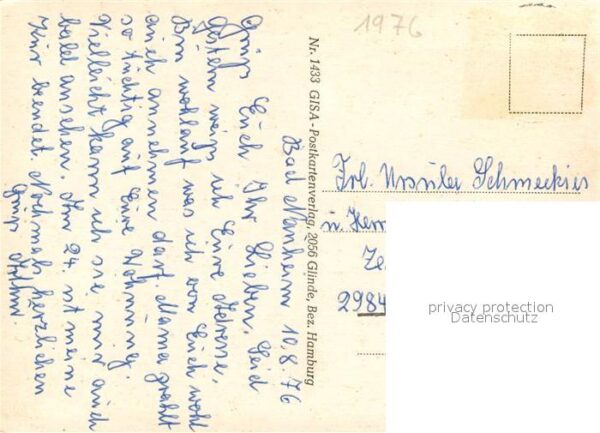 1976
Bad Nauheim 10.8.76
Grüß Euch Ihr Lieben. Seid
Gestern erfuhr ich Eure Adresse.
Bin wohlauf was ich von Euch wohl
auch annehmen darf. Mama prahlt
so tüchtig auf Eure Wohnung.
Vielleicht kann ich sie mir auch
bald ansehen. Am 24. ist meine
Kur beendet. Nochmals herzlichen
Gruß
Nr. 1433 GISA-Postkartenverlag, 2056 Glinde, Bez. Hamburg
Frl. Ursula Schmeckies
u. Herr
2984
privacy protection
Datenschutz